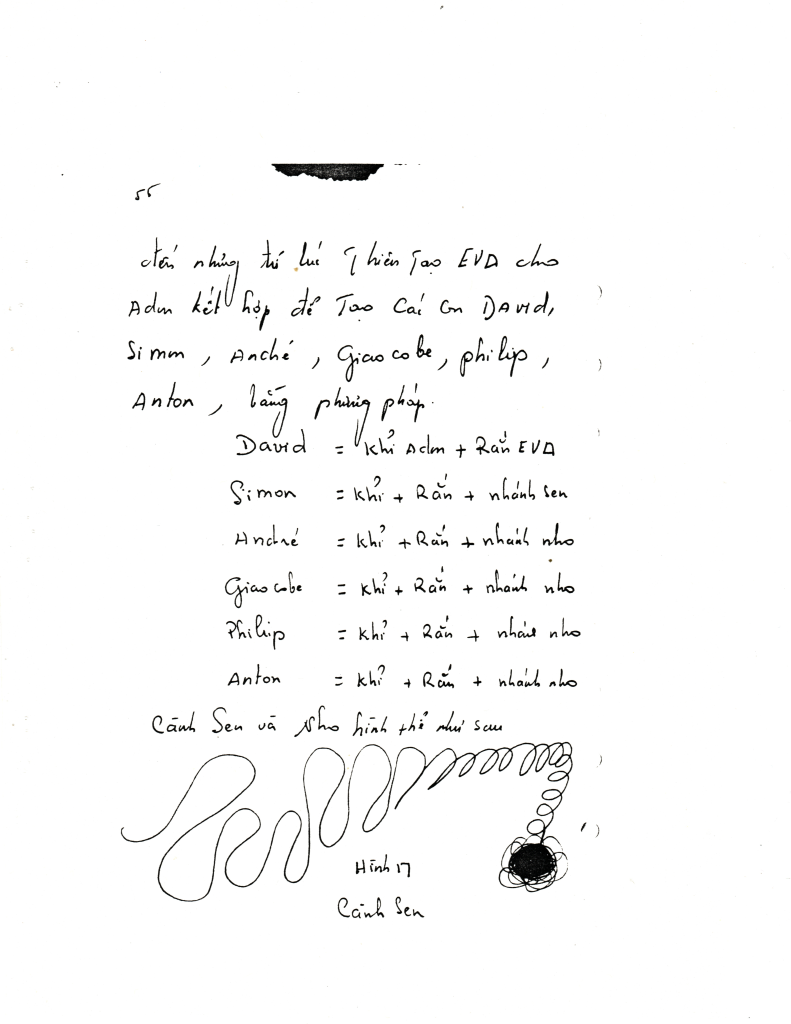 55
đến những từ lúc Thiên Tạo EVA cho
Adm kết hợp để Tạo Cái Con DAvid,
Simon, André, Giaocobe, philip,
Anton, bằng phương pháp.
David = Khỉ Adm + Rắn EVA
Simon = Khỉ + Rắn + nhánh sen
André = Khỉ + Rắn + nhánh nho
Giaocobe = Khỉ + Rắn + nhánh nho
Philip = Khỉ + Rắn + nhánh nho
Anton = Khỉ + Rắn + nhánh nho
Cành Sen và Nho hình thể như sau
Hình 17
Cành Sen